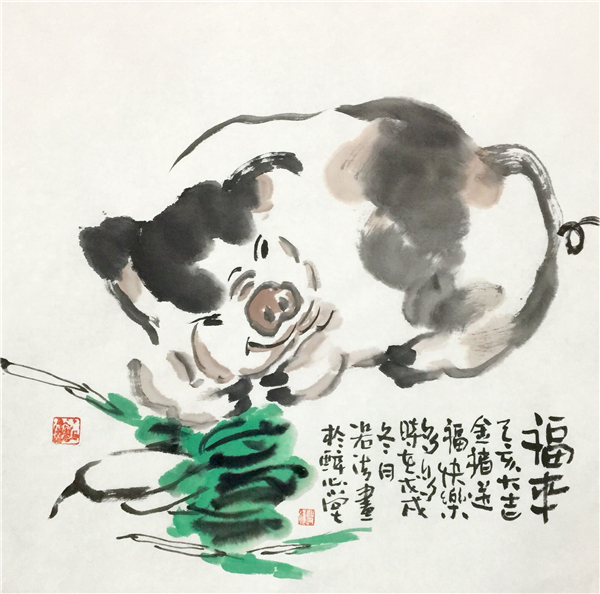 福来
己亥大吉
金猪送
福快樂
多多
時在戊戌
冬月
岩法畫
於醉心堂